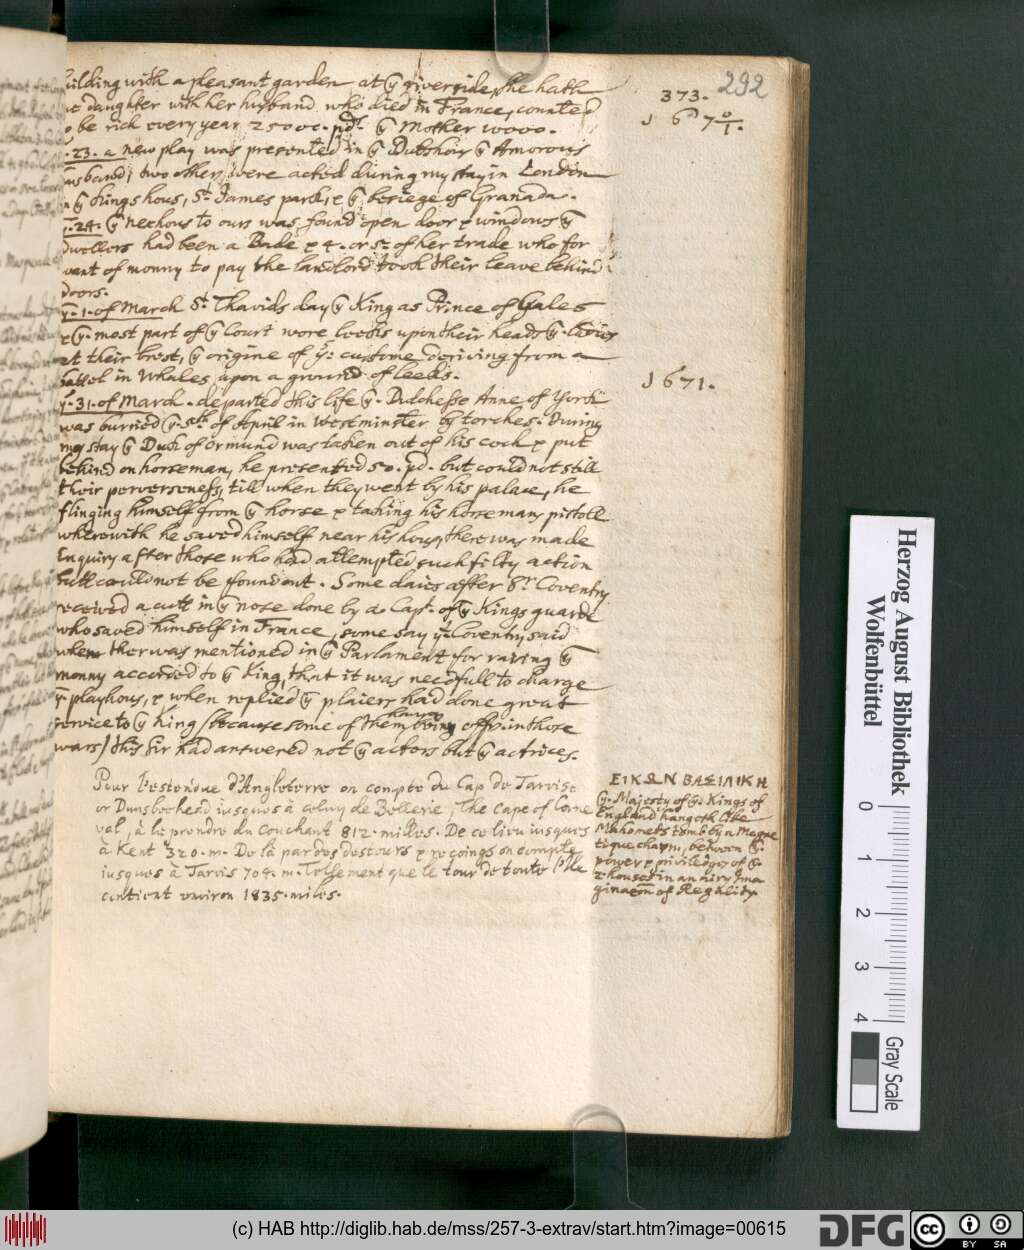 292
373.
uilding with a pleasant garden at ÿ riverside, she hath
daughter with her husband who died in France, counted
o be rich every year 25000. pd. ÿ Mother 10000.
1670/1.
.23. a new play was presented in ÿ Dukshous ÿ Amorous
usband, two others were acted during my stay in London
n ÿ Kings hous, St. James park, & ÿ besiege of Granada.
.24. ÿ next hous to ours was found open door & windows ÿ
dwellers had been a Bade & 4. or 5t. of her trade who for
want of monny to pay the landlord took their leave behind
doors.
ÿ.1. of March St. Thavids day ÿ King as Prince of Gales
& ÿ most part of ÿ Court wore leeks upon their heads ÿ
at their brest, ÿ origine of ÿs custome deriving from a
battel in Whales upon a ground of leeks.
1671.
ÿ.31. of March. departed this life ÿ. Dutchesse Anne of York
was burried ÿ 5th. of April in Westminster by torches. During
my stay ÿ Duck of Ormund was taken out of his coch & put
behind on horseman, he presented 50. pd. but could not still
their perverseness, till when they went by his palace, he
flinging himself from ÿ horse & taking his horsemans pistoll
wherewith he saved himself near his hous, there was made
Enquiry after those who had attempted such filty action
butt could not be found out. Some daies after Sr. Coventry
received a cutt in ÿ nose done by a Capt. of ÿ Kings guarde
who saved himself in France, some say yt Coventry said
when ther was mentioned in ÿ Parlament for raising ÿ
monny accorded to ÿ King, that it was needfull to charge
ÿ playhous, & when replied ÿ plaiers had done great
service to ÿ King (because some of them having been offic: in those
wars) this Sir had answered not ÿ actors but ÿ actrices.
Pour l'estendue d'Angleterre on compte du Cap de Tarvise
or Dunsbeehead jusques à celuy de Bellerie, The Cape of Corne
val, à le prendre du couchant 812. milles. De ce lieu jusques
à Kent 320. m. De là par des destours & recoings on compte
jusques à Tarvis 704. m. Tellement que le tour de toute l'Isle
contient environ 1835. miles.
ΕΙΚΩΝ ΒΑΣΙΛΙΚΗ
ÿ. Majesty of ÿs Kings of
England hangeth like
Mahomets tomb by a Magne
tique charm, between ÿ.
power & priviledges of ÿ.
2 houses in an airy Ima
ginaton of Regality.
Herzog August Bibliothek
Wolfenbüttel
0
1
2
3
4
Gray Scale
(c) HAB http://diglib.hab.de/mss/257-3-extrav/start.htm?image=00615
DFG
cc
BY SA